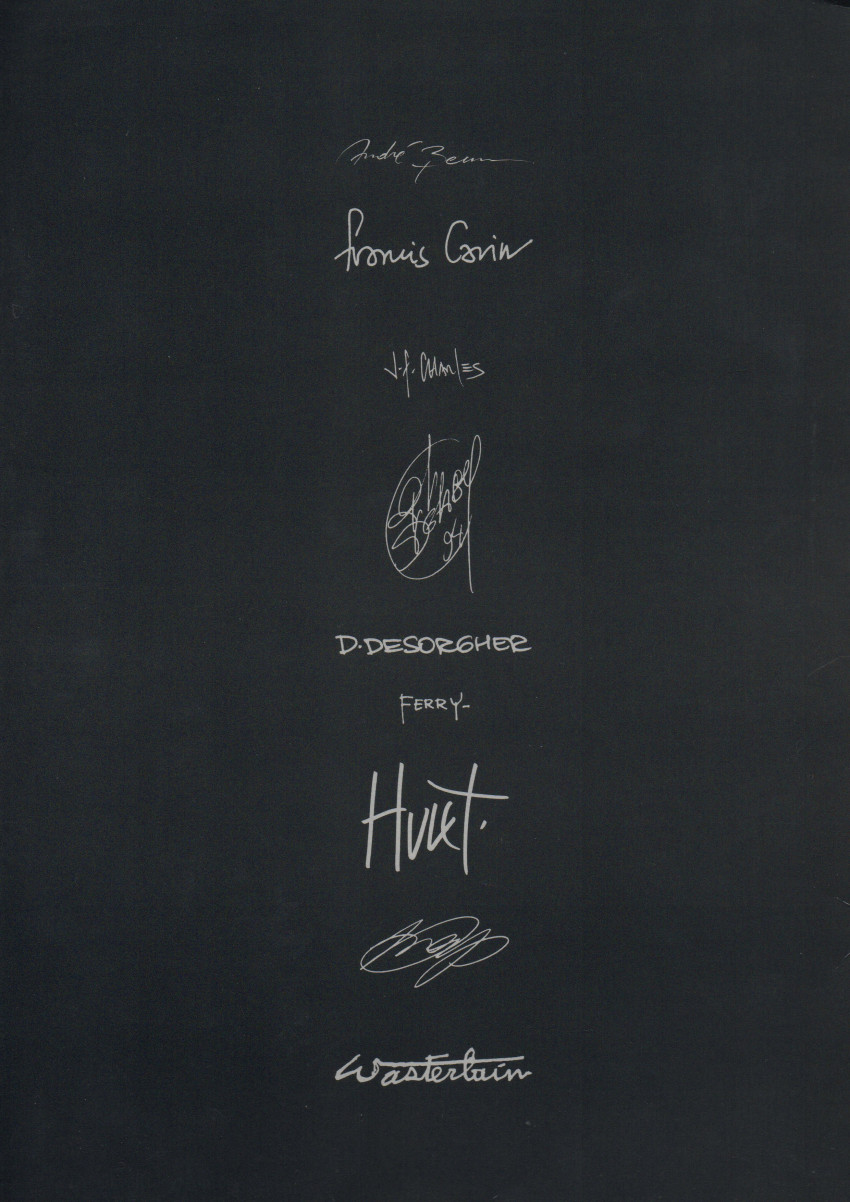 André Benn
Francis Carin
J.F. CHARLES
D. DESORGHER
FERRY-
HULET.
Wasterlain